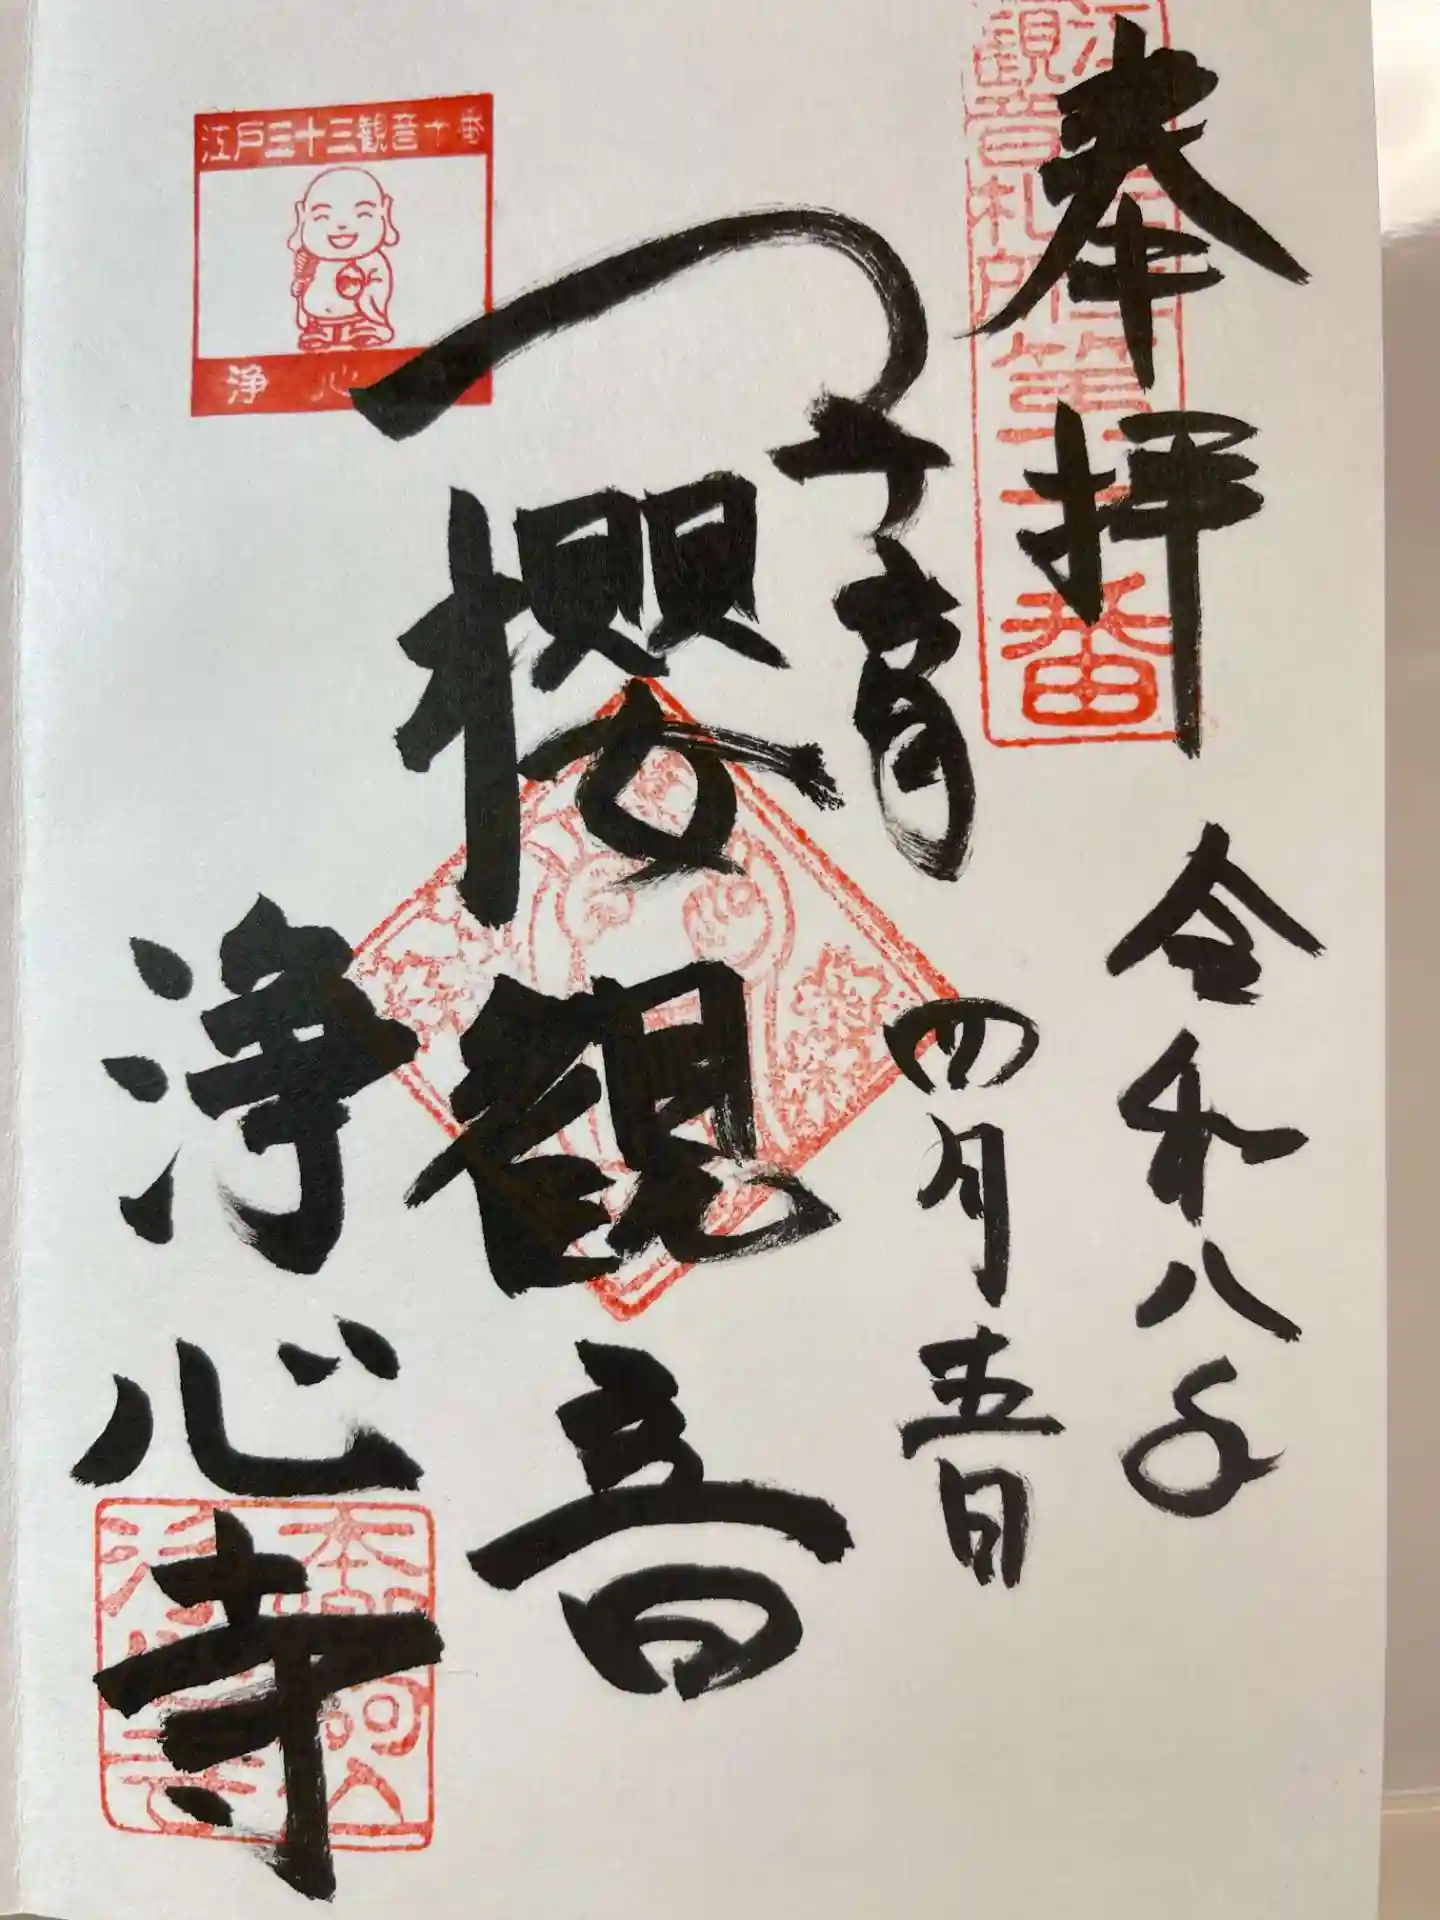 奉拝
令和八年
四月五日
子育
櫻観音
浄心寺
江戸三十三観音十番
浄心
観音札所第十番